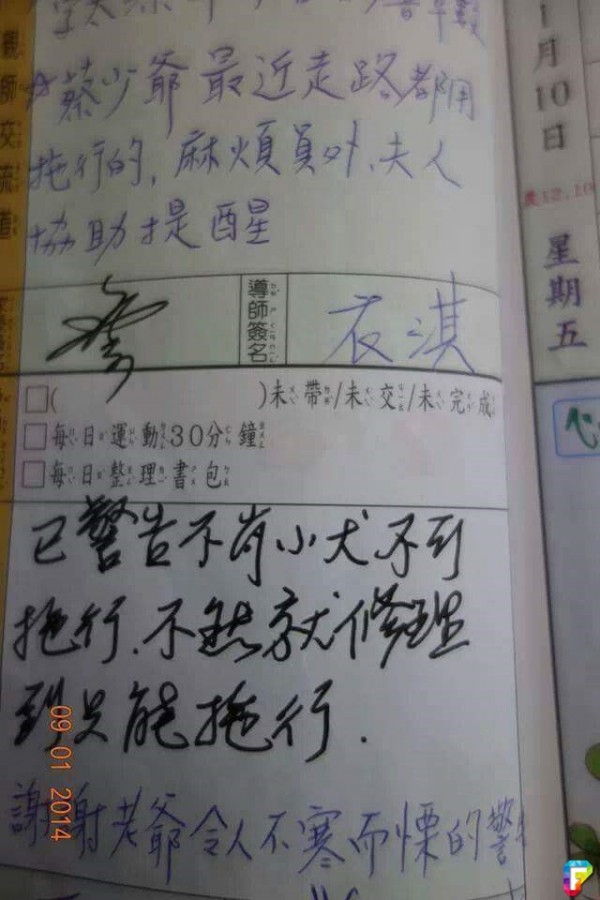 ☆蔡少爺最近走路都用
拖行的，麻煩員外、夫人
協助提醒
導師簽名
衣淇
□( )未帶/未交/未完成
□每日運動30分鐘
□每日整理書包
已警告不肖小犬不可
拖行.不然就修理
到只能拖行.
謝謝老爺令人不寒而慄的警
親師交流道
1月10日
農12.10
星期五
09 01 2014
F